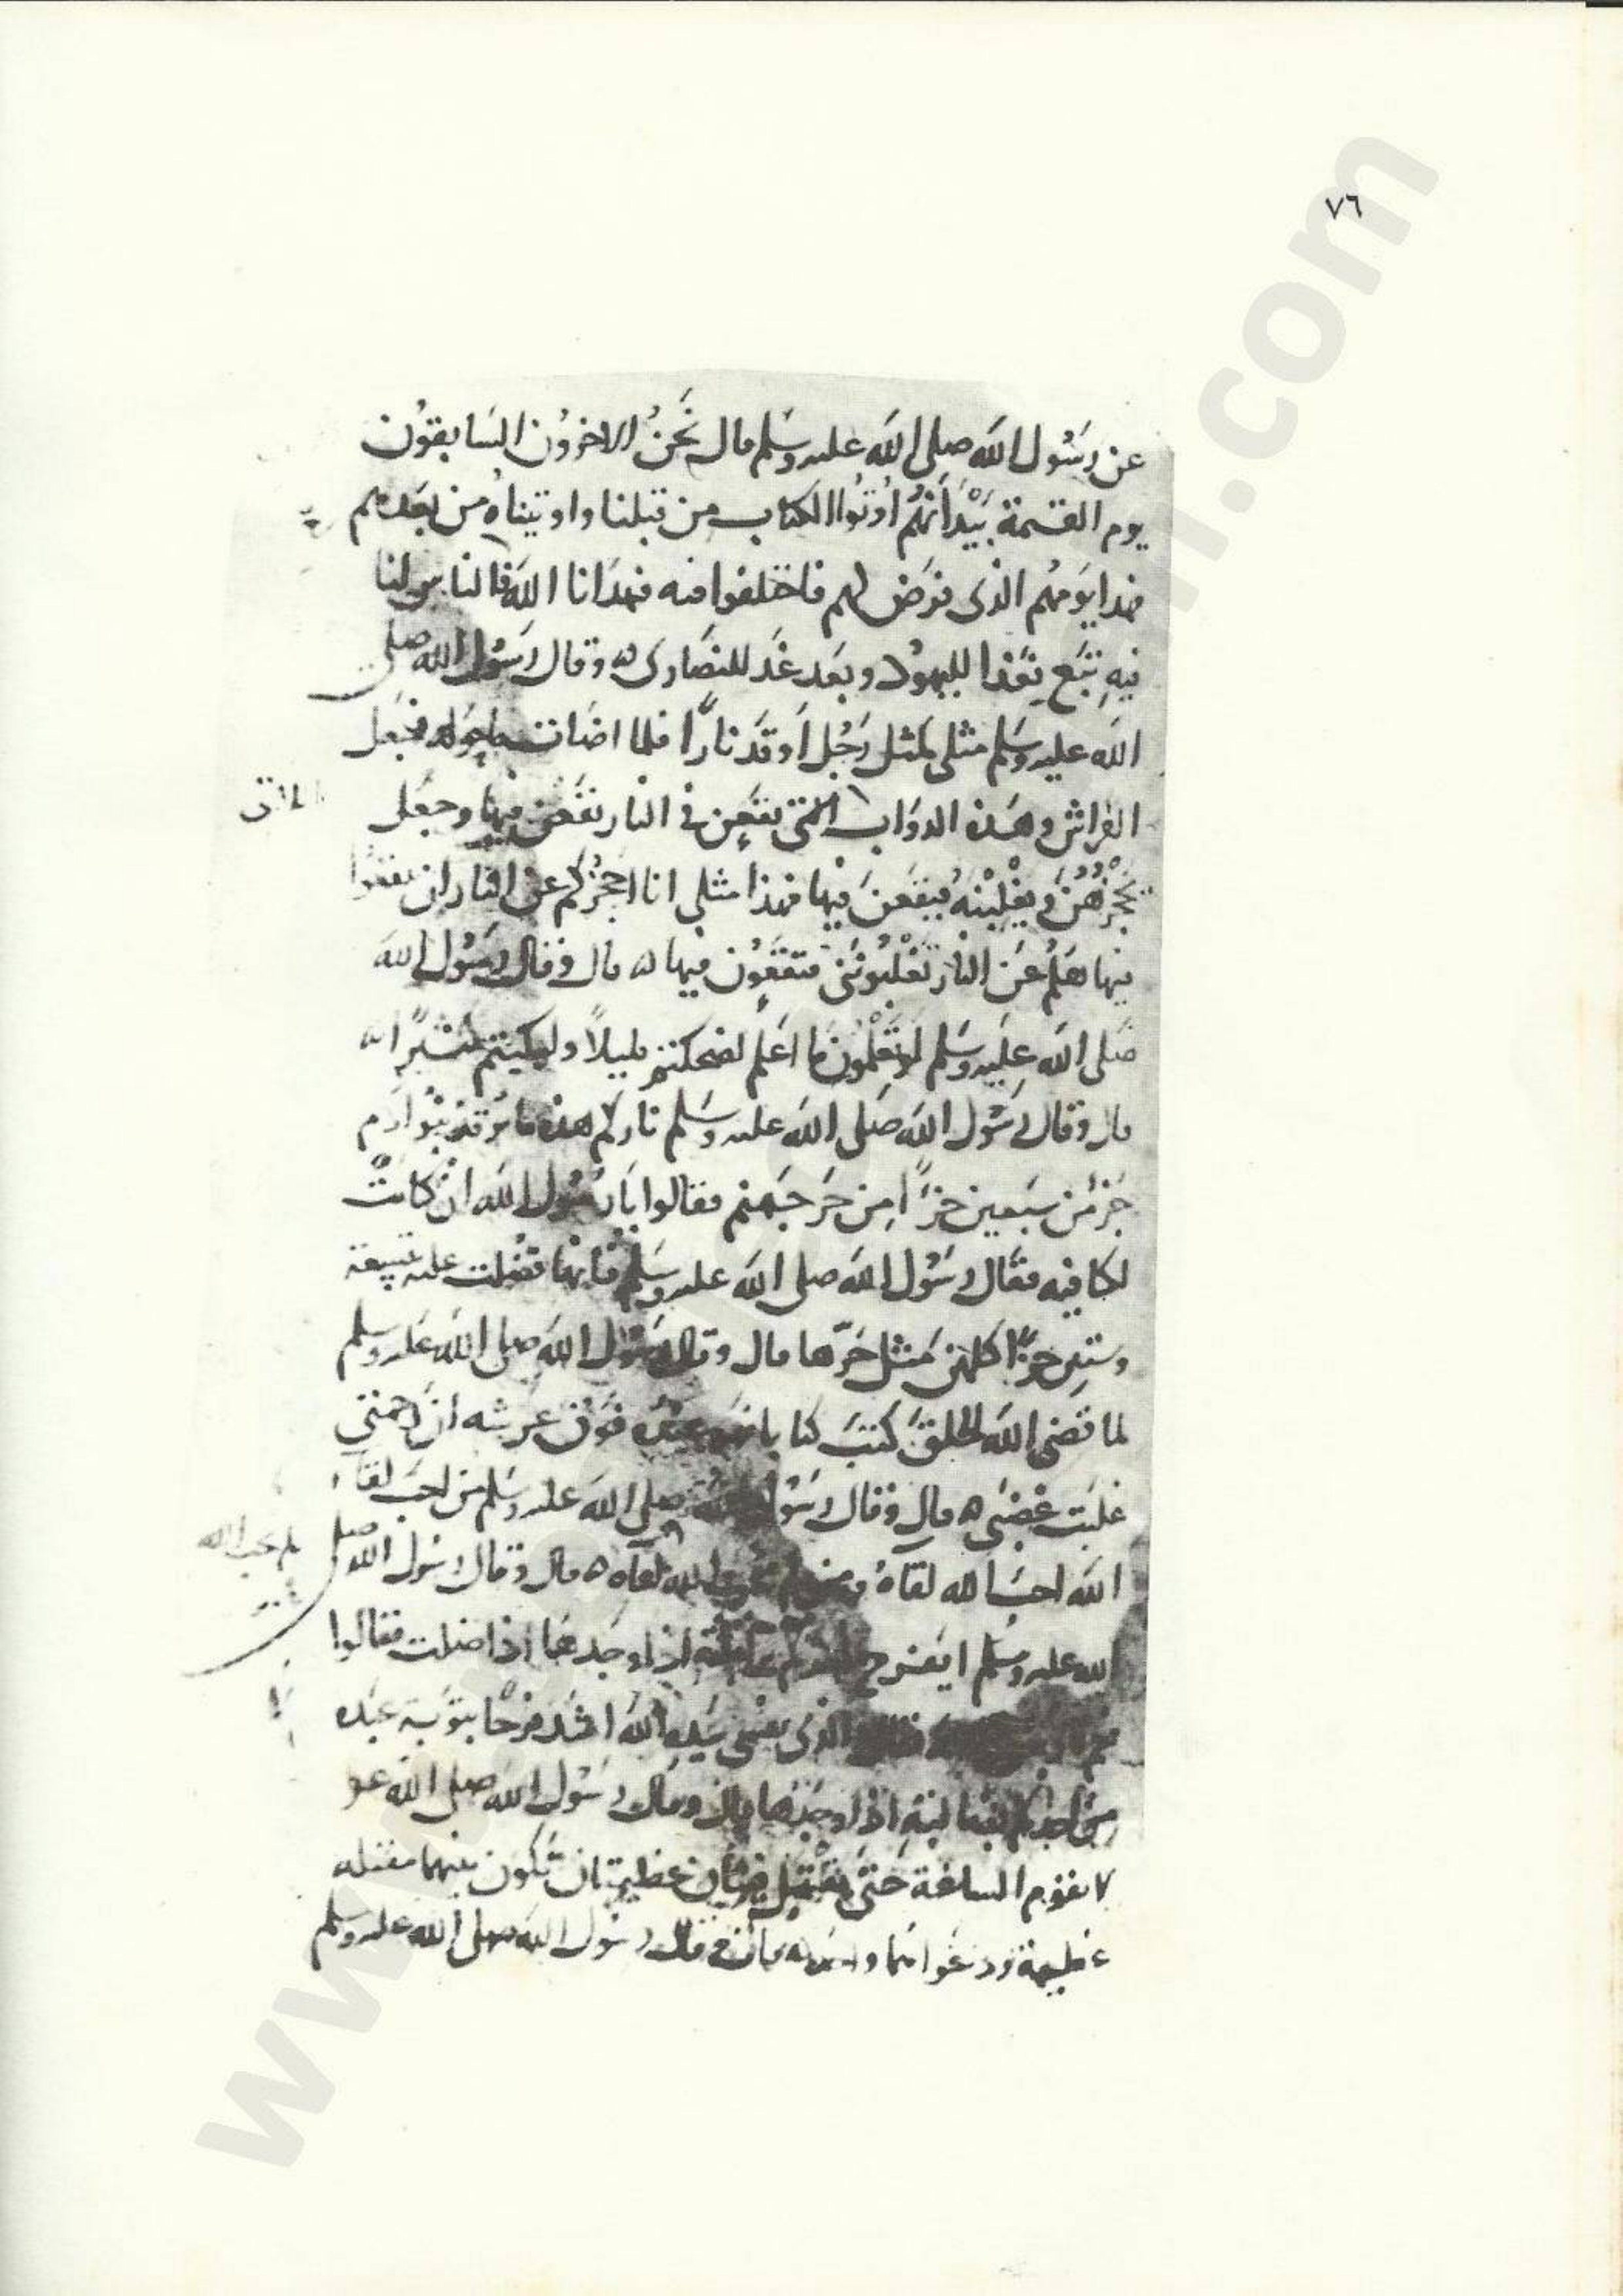 ٧٦
عن رَسُول الله صلى الله عليه وسلم قال نَحْنُ الاخرُون السَابقوُن
يوم القيمة بَيْدَ أنهُم أوتُوا الكتاب من قبلنا واوتيناهُ من بَعدهم
فهذا يَومُهُم الذى فرَض لهم فاختلفوا فيه فهدَانا الله فالناس لنا
فيهِ تَبَع فغَدا لليهوُد وبَعد غَد للنصَارى ه وقال رسُول الله صلى
الله عليه وسَلم مثلى كمثل رَجُل أوقدَ نارًا فلما اضَات ما حَوله فجَعل
الفراش وهَذه الدوَاب التى يقعن فى النار يقعن فيها وجعَل
يحجُزُهُنّ ويغْلِبْنهُ فيقعْنَ فيها فهذا مثلى انا احجُزُكم عن النار ان تقعوا
فيها هَلُم عَن النار تغْلبُونَنى فتقعُون فيها ه قال وقال رسُول الله
صَلى الله عليه وسَلم لو تعْلمُون ما اعلم لضحكتم قليلًا ولبكيتم كثيرًا ه
قال وقال رسُول الله صَلى الله عليه وسَلم ناركم هذه ما يُوقد بنُوا ادَم
جُزءٌ من سبَعين جزءًا مِن حَر جَهنم فقالوا يَا رسُول الله ان كانتْ
لكافيه فقال رسُول الله صلى الله عليه وسَلم فانها فضُلت عليه تسِعة
وستين جزءًا كلهن مَثل حَرّها قال وقال رسُول الله صلى الله عَليه وسلم
لما قضَى الله الخلقَ كتبَ كتابا فهو عنده فَوْق عرشه ان رحمتى
غلبَت غضبَى ه قال وقال رسُول الله صلى الله عليه وسَلم من احبَ لقاء
الله احبَ الله لقاهُ ومن لم يحب لقاء الله لم يحب الله لقاه ه قال وقال رسُول الله صلى
الله عليه وسلم ايفرح احدكم براحلته اذا وجَدها اذا ضلت فقالوا
نعم الذى نفسى بيده الله اشَد فرحًا بتوَبة عبَده
من احدكم براحلته اذا وجَدها قال وقال رسُول الله صلى الله عو
لا تقوُم الساعة حَتىَ يقتتل فئتان عظيمتان تكون بينهما مقتله
عظيمة ودعواهما واحده قال وقال رسُول الله صلى الله عليه وسلم
لم يحب الله